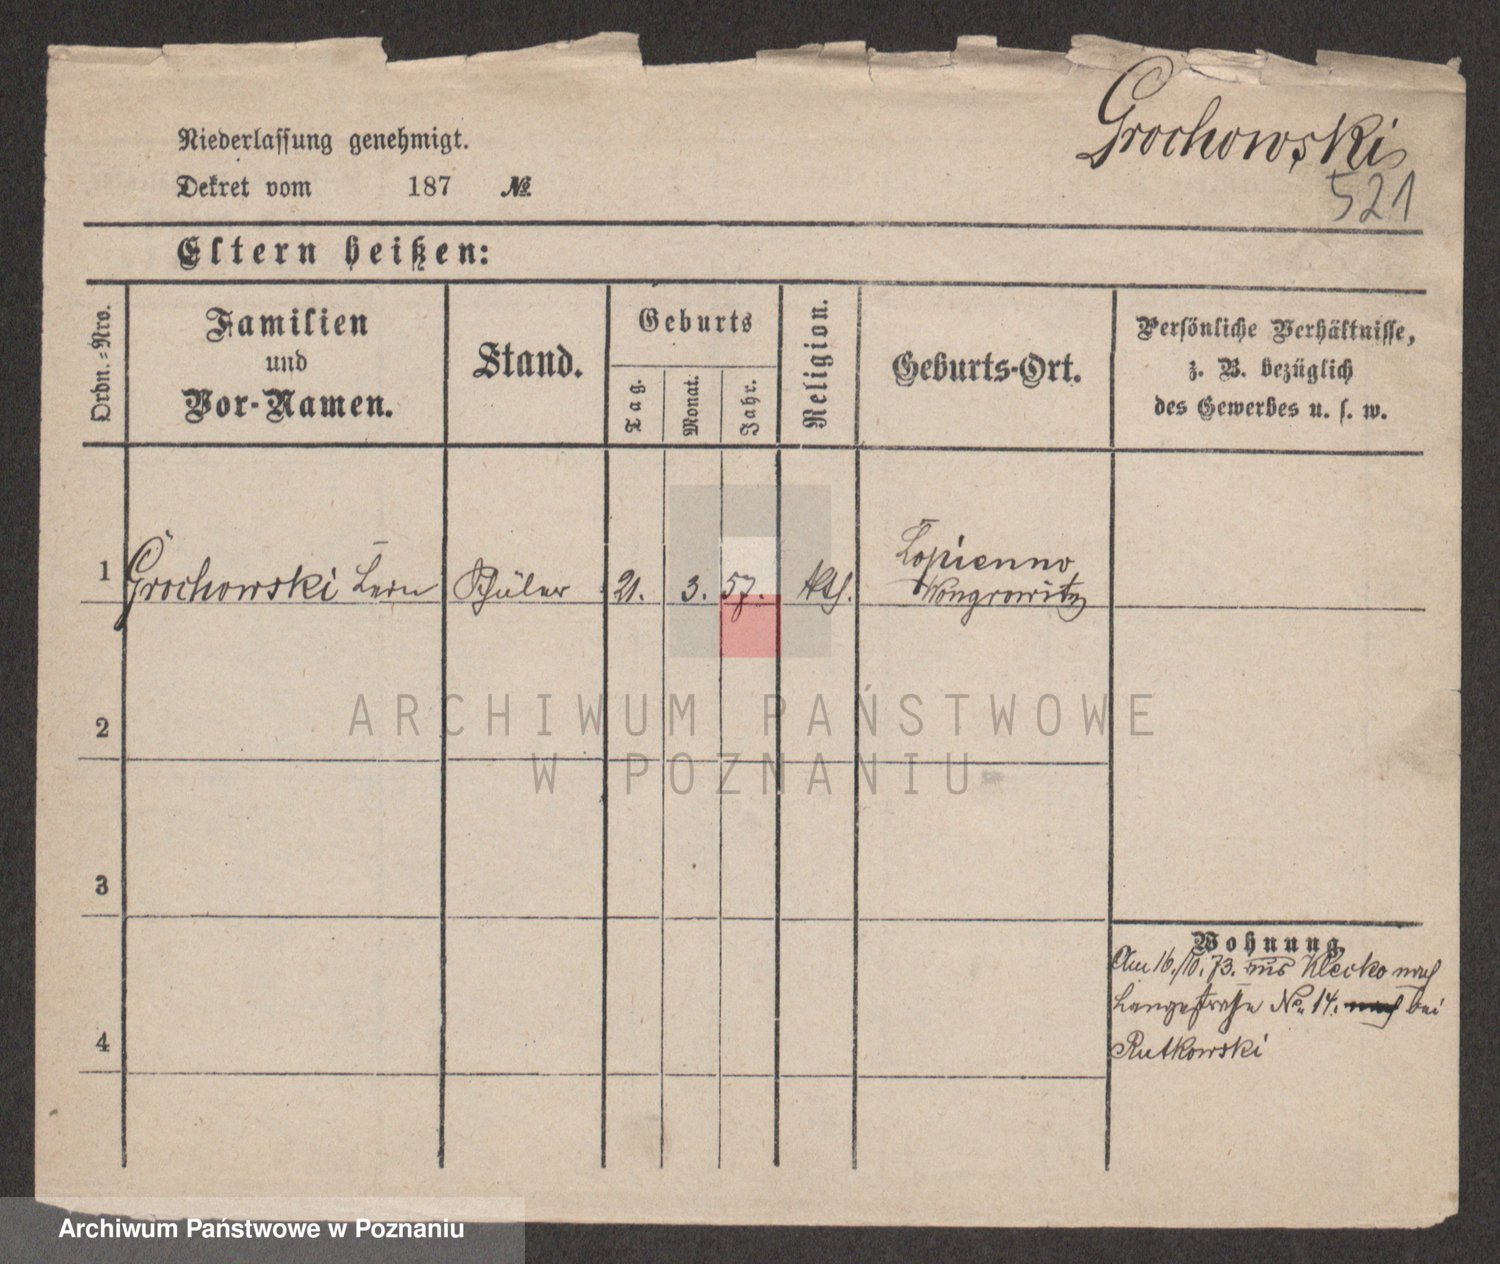 Grochowski
521
Niederlassung genehmigt.
Dekret vom 187 №
Eltern heißen:
Ordn.-Nro.
Familien
und
Vor-Namen.
Stand.
Geburts
Tag.
Monat.
Jahr.
Religion.
Geburts-Ort.
Persönliche Verhältnisse,
z. B. bezüglich
des Gewerbes u. s. w.
1 Grochowski Leon Schüler 21. 3. 57. kth. Lopienno
Wongrowitz
ARCHIWUM PAŃSTWOWE
W POZNANIU
2
3
4
Wohnung.
Am 16./10. 73. aus Klecko nach
Langestraße No. 14. bei
Rutkowski
Archiwum Państwowe w Poznaniu